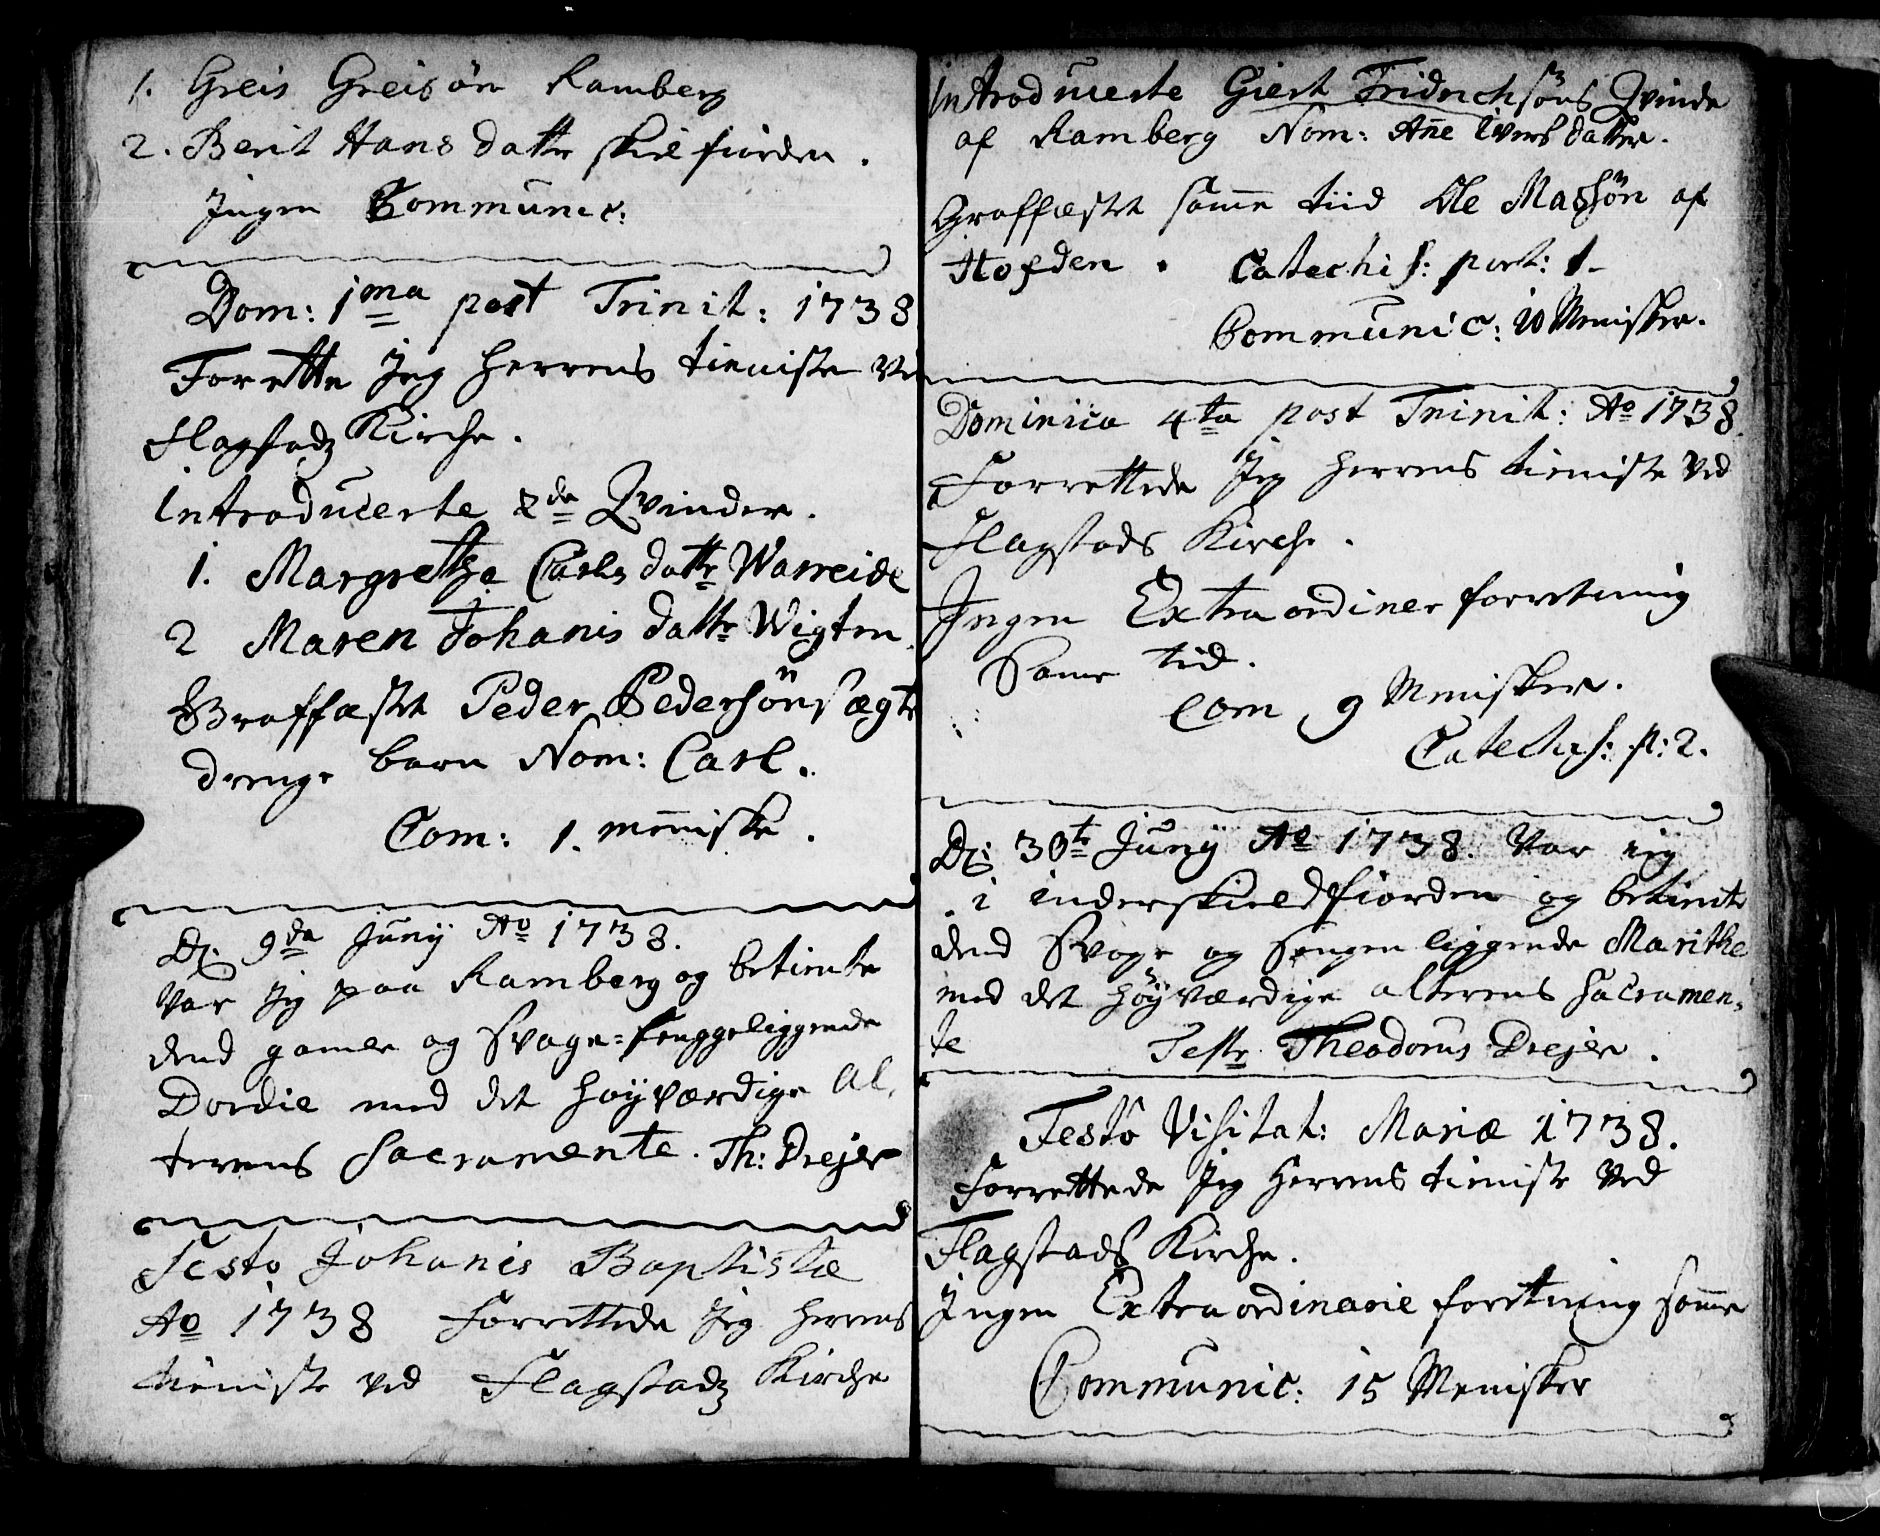 1. Greis Greisøn Ramberg
2. Berit Hans datter skielfiorden.
Ingen Communic:
Dom: 1ma post Trinit: 1738
Forrette jeg Herrens tieniste Ved
Flagstadz Kirche.
introducerte 2de Qvinder.
1. Margrethe Carls dattr Warreide
2 Maren Johanis dattr Wigten.
Graffæstet Peder Pedersøns ægte
drenge barn Nom: Carl.
Com: 1. meniske.
D. 9da Junij Ao 1738.
Var jeg paa Ramberg og betiente
dend gamle og Svage=sengeliggende
Dordie med det høyværdige Al,
terens Sacramente. Th: Drejer
Festo Johanis Baptistæ
Ao 1738 Forrettede Jeg Herrens
tieniste ved Flagstadz Kirche
introducerte Giert Fridrichsøns Qvinde
af Ramberg Nom: Ane Iversdatter.
Graffæstet same tiid Ole Madsøn af
Hofden. Catechis: part: 1.
Communic: 10 Menisker.
Dominica 4ta post Trinit: Ao 1738.
Forrettede Jeg Herrens tieniste Ved
Flagstads Kirche.
Ingen Extraordiner forretning
Same tid.
Com 9 Menisker.
Catechis: p: 2.
D: 30te Junij Ao 1738. Var jeg
i inderskieldfiorden og betiente
dend Svage og Sengen liggende Marithe
med det høyværdige alterens Sacramen,
te Testr Theodorus Drejer.
Festo Visitat: Mariæ 1738.
Forrettede Jeg Herrens tieniste Ved
Flagstads Kirche.
Ingen Extraordinarie forretning same
Communic: 15 Menisker